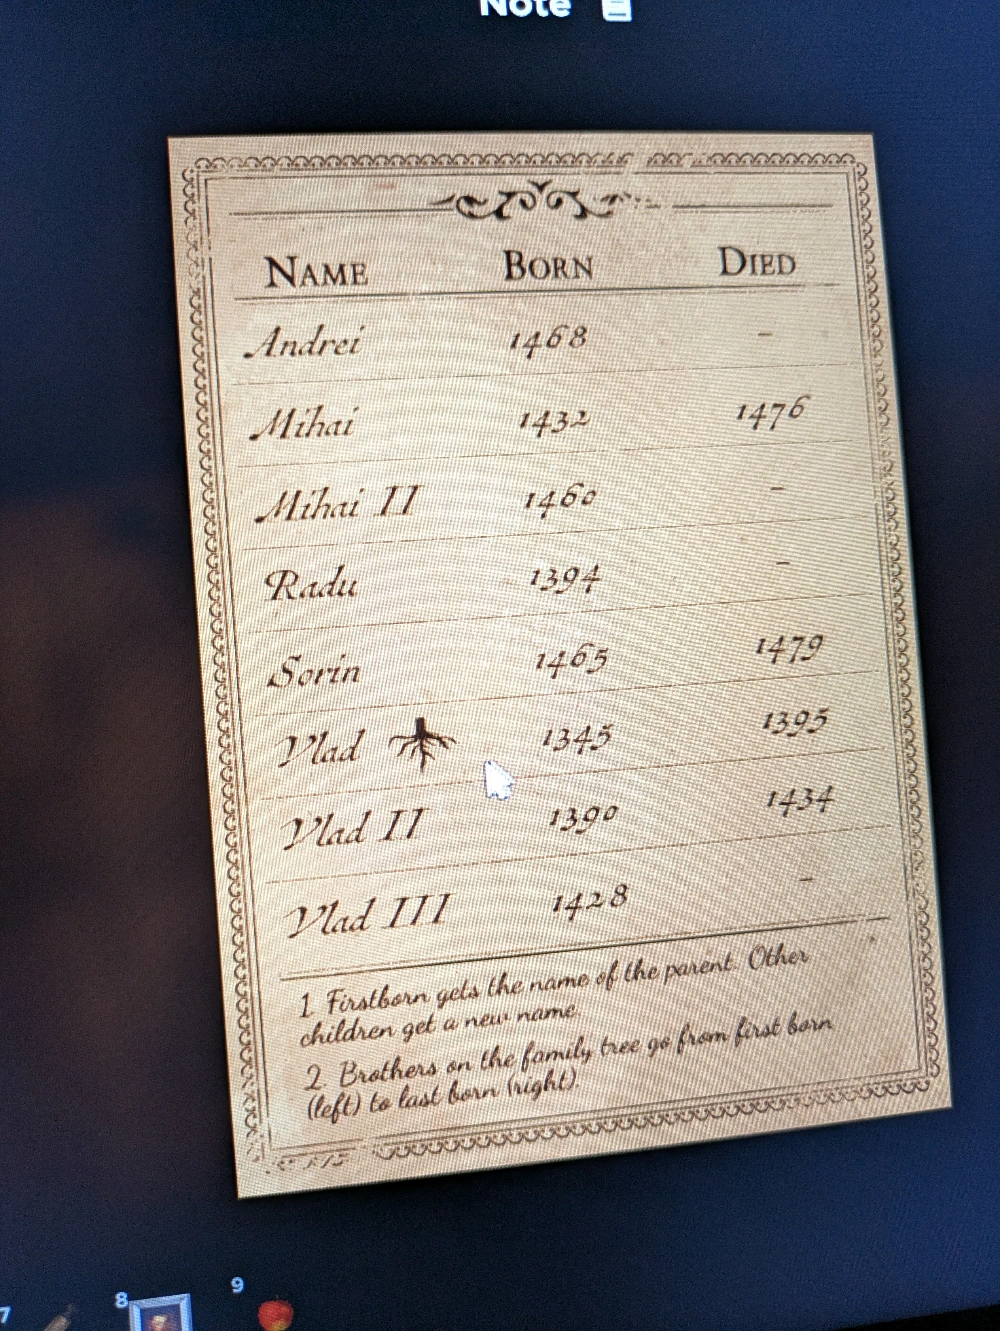 Note
NAME BORN DIED
Andrei 1468 –
Mihai 1432 1476
Mihai II 1460 –
Radu 1394 –
Sorin 1465 1479
Vlad 1345 1395
Vlad II 1390 1434
Vlad III 1428 –
1. Firstborn gets the name of the parent. Other
children get a new name.
2. Brothers on the family tree go from first born
(left) to last born (right).
7 8 9